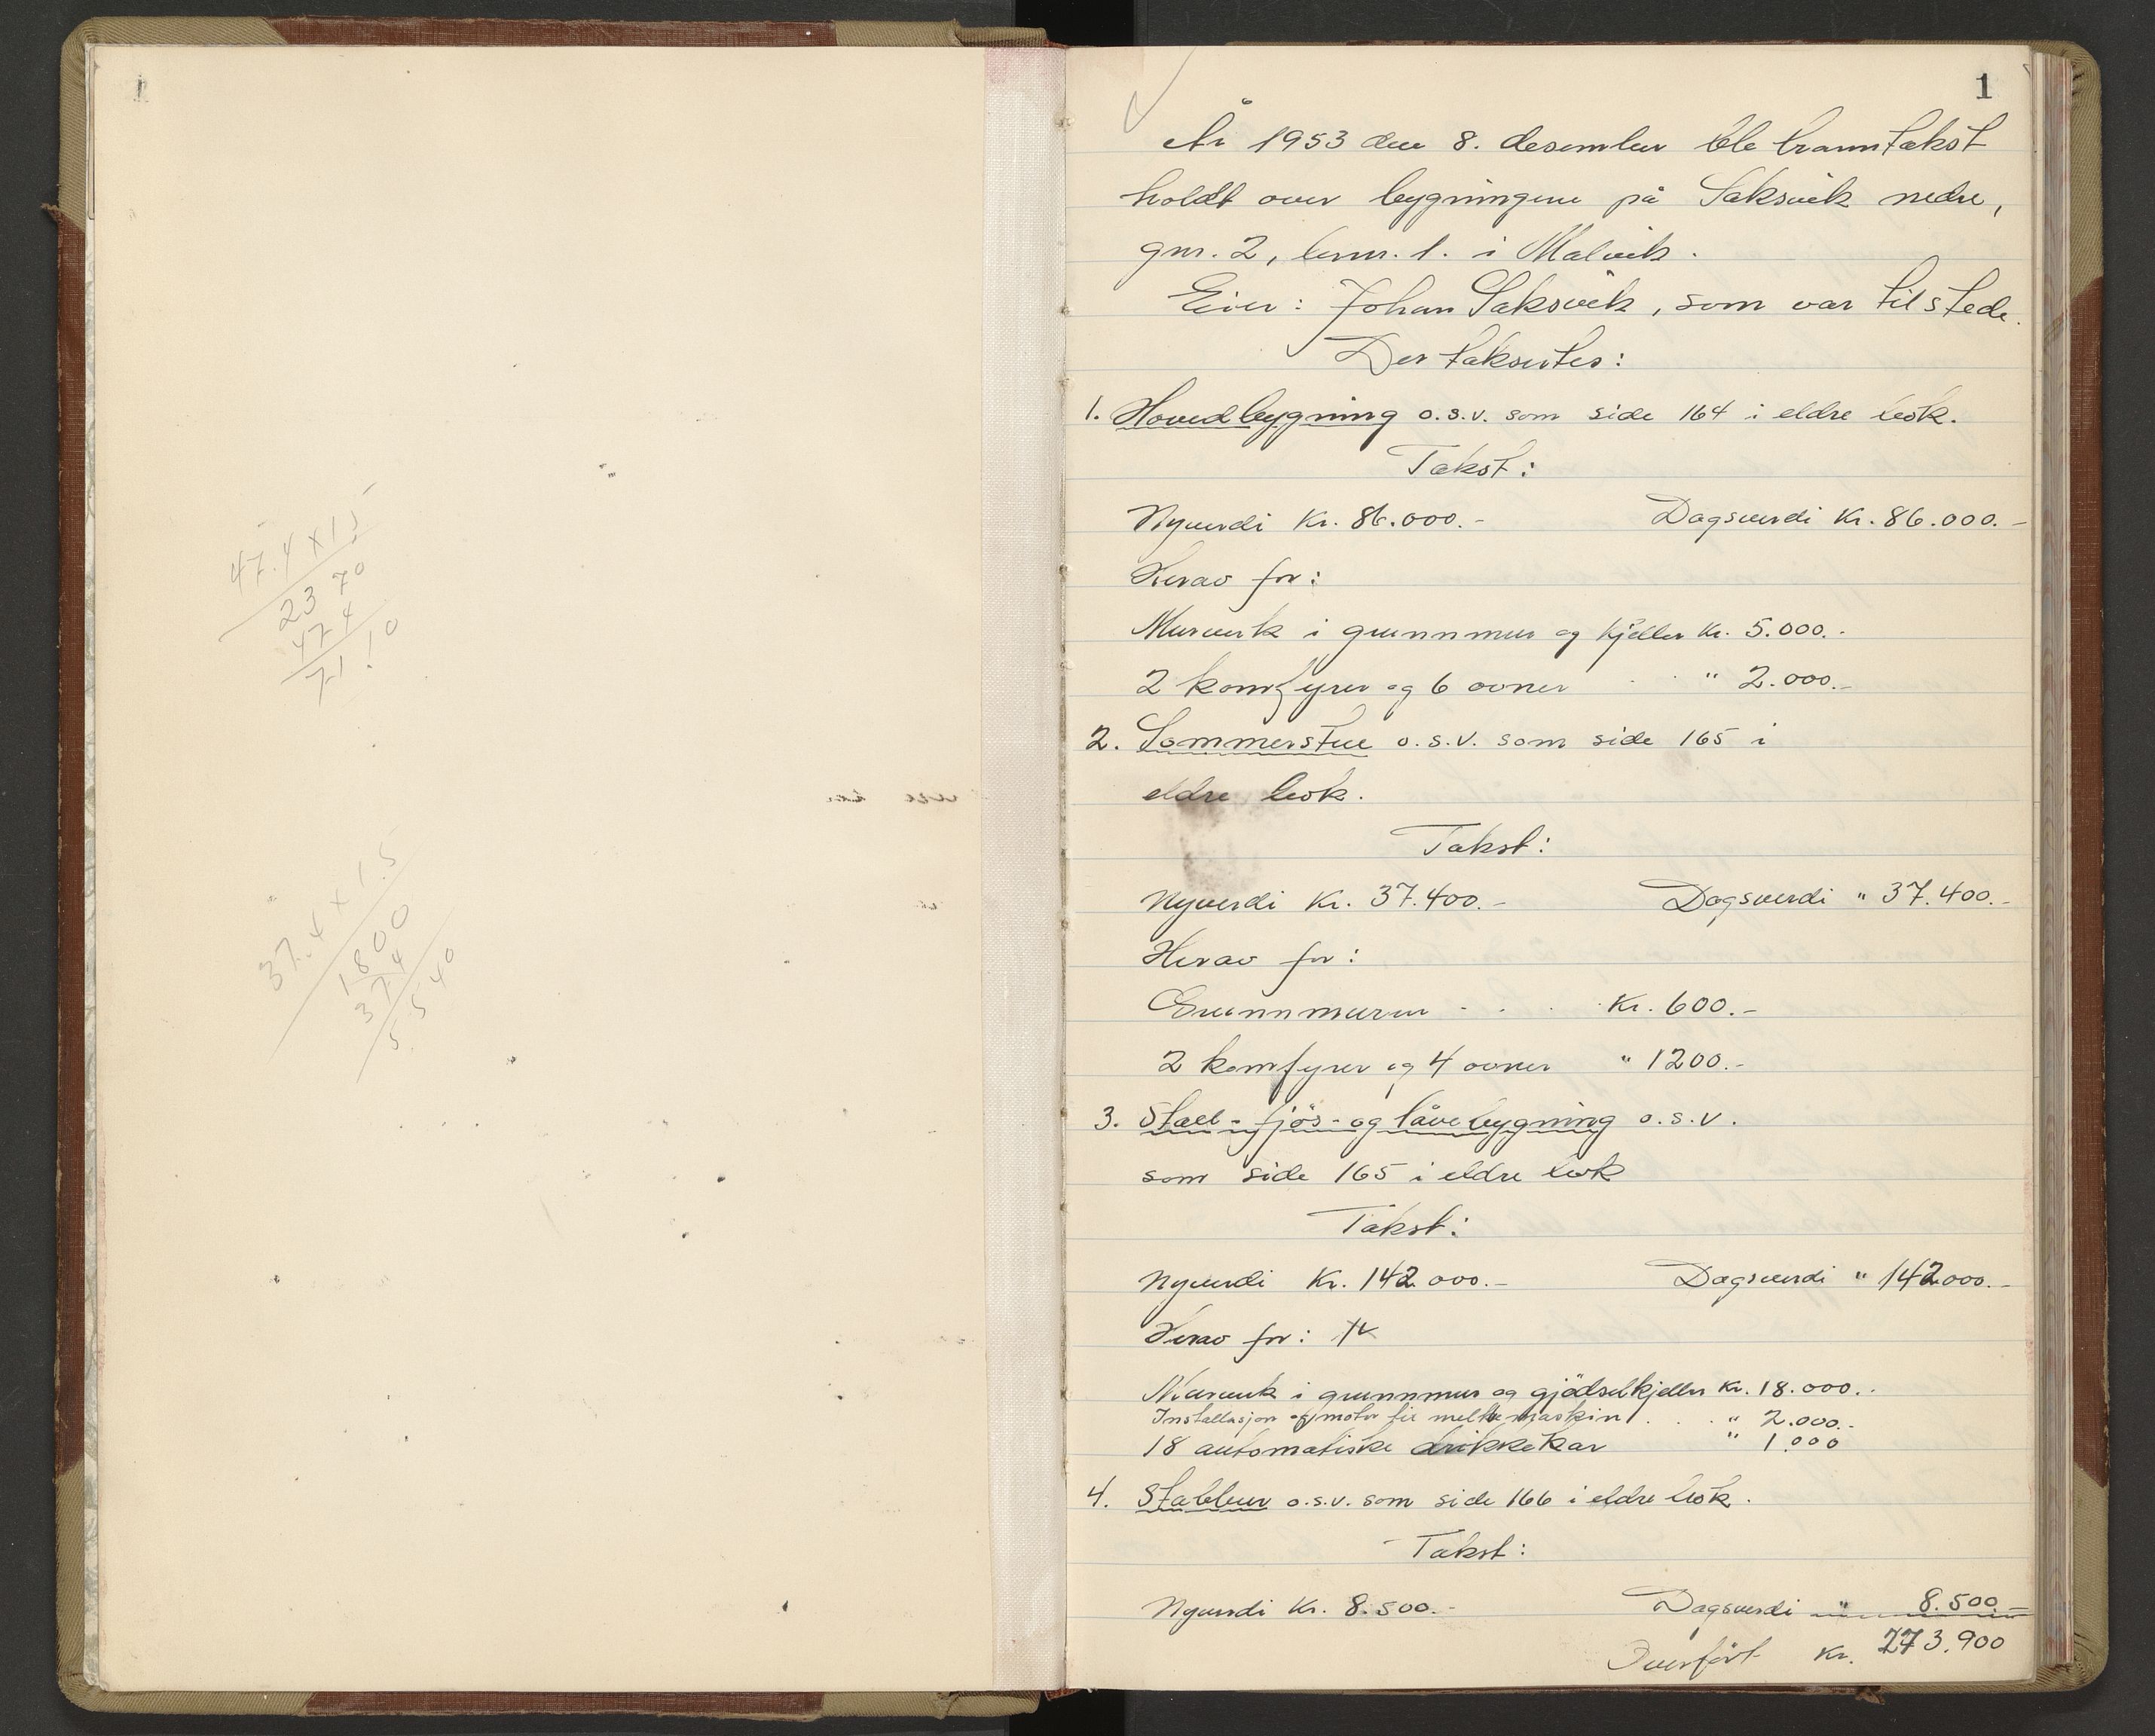 47.4 x 15
2370
474
71!0
37.4 x 1.5
1800
374
5540
1
År 1953 den 8. desember ble branntakst
holdt over bygningene på Saksvik nedre,
gnr. 2, bnr. 1. i Malvik.
Eier: Johan Saksvik, som var tilstede.
Der taksertes:
1. Hovedbygning o.s.v. som side 164 i eldre bok.
Takst:
Nyverdi Kr. 86.000.- Dagsverdi Kr. 86.000.-
Herav for:
Murverk i grunnmur og kjeller Kr. 5.000.-
2 komfyrer og 6 ovner " 2.000.-
2. Sommerstue o.s.v. som side 165 i
eldre bok.
Takst:
Nyverdi Kr. 37.400.- Dagsverdi " 37.400.-
Herav for:
Grunnmuren - . . Kr. 600.-
2 komfyrer og 4 ovner " 1200.-
3. Stall- fjøs- og låvebygning o.s.v.
som side 165 i eldre bok
Takst:
Nyverdi Kr. 142.000.- Dagsverdi " 142.000.-
Herav for:
Murverk i grunnmur og gjødselkjeller Kr. 18.000.-
Installasjon og motor til melkemaskin . . . " 2.000.-
18 automatiske drikkekar " 1.000
4. Stabbur o.s.v. som side 166 i eldre bok.
Takst:
Nyverdi Kr. 8.500.- Dagsverdi " 8.500.-
Overført Kr. 273.900